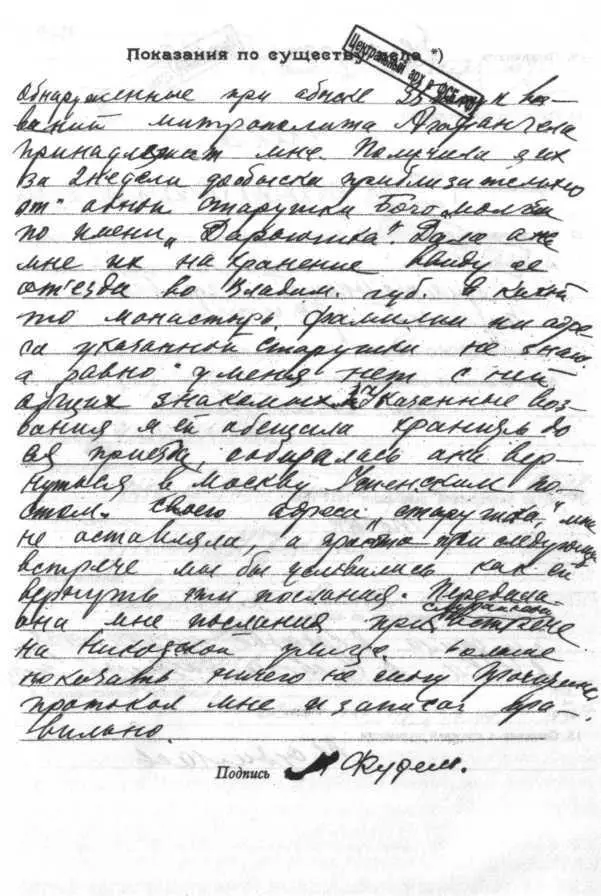 Показания по существу дела *)
Центральный арх в ФСБ
обнаруженные при обыске 25 штук воз-
ваний митрополита Агафангела
принадлежат мне. Получила я их
за 2 недели до обыска приблизительно
от" одной старушки богомолки
по имени „Дарьюшка". Дала она
мне их на хранение ввиду ее
отъезда во Владим. губ. в какой
то монастырь. Фамилии ни адре
са указанной старушки не знаю
а равно у меня нет с ней
общих знакомых. Указанные воз-
вания я ей обещала хранить до
ея приезда, собиралась она вер-
нуться в Москву Успенским по-
стом. Своего адреса старушка, мне
не оставляла, а просто при следующей
встрече мы бы условились как ей
вернуть эти послания. Передала
она мне послания при случайной встрече
на Никольской улице. Больше
показать ничего не могу Прочитан
протокол мне и записан пра-
вильно.
Подпись